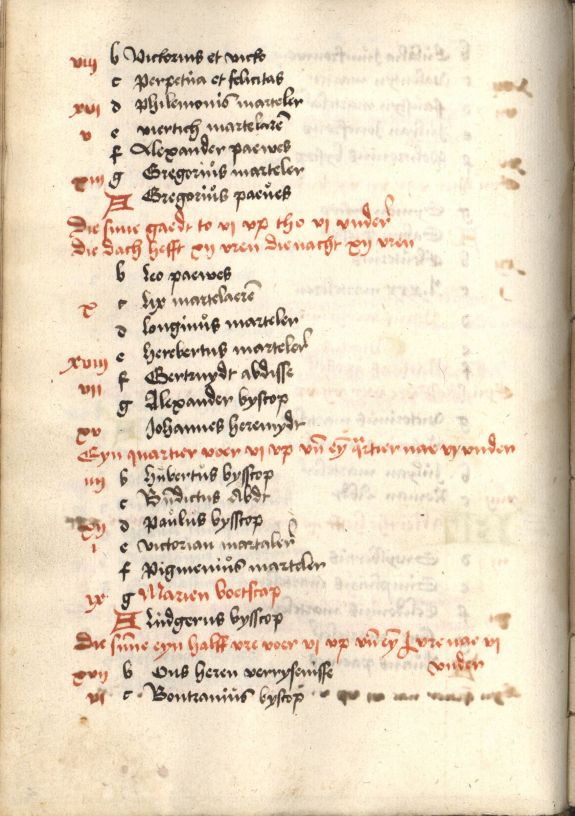 viii b Victorius et victo
c Perpetua et felicitas
xvi d Philemonis marteler
v e viertich martelaren̄
f Alexander paewes
xiii g Gregorius marteler
A Gregoriůs paeues
Die sūne gaedt to vi vp tho vi vnder
die dach hefft xii vren die nacht xii vren
b Leo paewes
x c Lix martelaerē
d Longinůs marteler
xviii e Herebertus marteler
vii f Gertruydt abdisse
g Alexander byscop
xv Johannes heremydt
Eyn quartier voer vi vp vn̄ eȳ q̄rtier nae vi vnder
iiii b Hubertůs bysscop
c Bn̄dictus Abdt
xii d Paulůs bysscop
i e victorian martaler
f Pigmeniůs marteler
ix g Marien boetscap
A Ludgerus bysscop
Die sūne eyn halff vre voer vi vp vn̄ eȳ vre nae vi
vnder
xvii b Ons heren verrysenisse
vi c Bontraniůs byscop